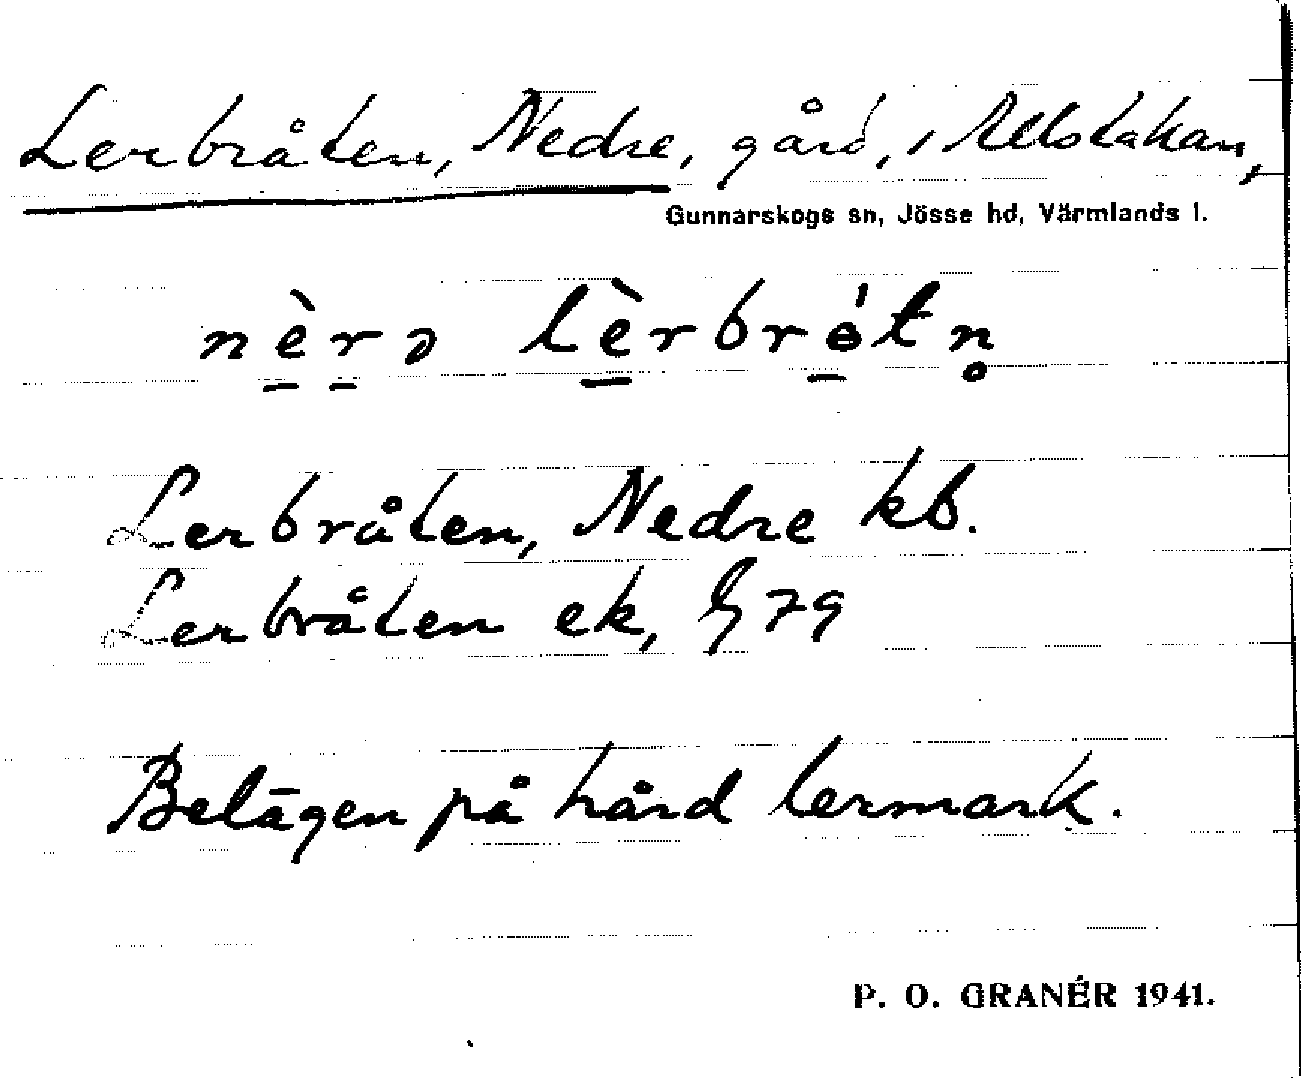 Lerbråten, Nedre, gård, i Allstakan,
Gunnarskogs sn, Jösse hd, Värmlands l.
nèrə lèrbrótn̥
Lerbråten, Nedre kb.
Lerbråten ek, G 79
Belägen på hård lermark.
P. O. GRANÉR 1941.